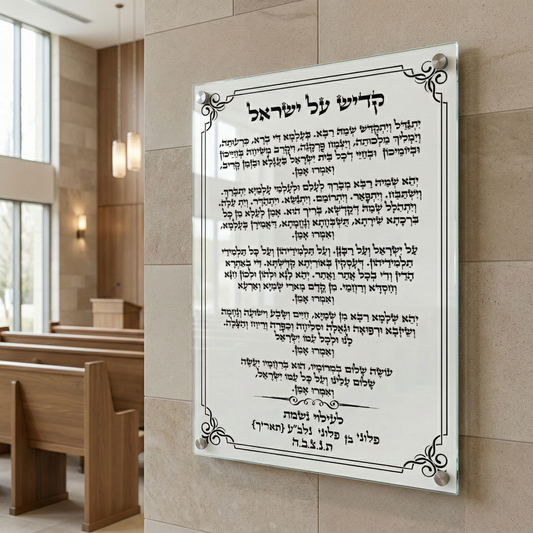 קדיש על ישראל
יתגדל ויתקדש שמה רבא. בעלמא די ברא, כרעותה,
וימליך מלכותה, ויצמח פרקנה, ויקרב משיחה בחייכון
וביומיכון ובחיי דכל בית ישראל בעגלא ובזמן קריב,
ואמרו אמן.
יהא שמיה רבא מברך לעלם ולעלמי עלמיא יתברך.
וישתבח. ויתפאר. ויתרומם. ויתנשא. ויתהדר. ויתעלה.
ויתהלל שמה דקודשא, בריך הוא. אמן לעלא מן כל
ברכתא שירתא, תשבחתא ונחמתא, דאמירן בעלמא,
ואמרו אמן.
על ישראל ועל רבנן. ועל תלמידיהון ועל כל תלמידי
תלמידיהון. דעסקין באוריתא קדישתא. די באתרא
הדין ודי בכל אתר ואתר. יהא לנא ולהון ולכון חנא
וחסדא ורחמי. מן קדם מארי שמיא וארעא
ואמרו אמן.
יהא שלמא רבא מן שמיא, חיים ושבע וישועה ונחמה
ושיזבא ורפואה וגאלה וסליחה וכפרה וריוח והצלה.
לנו ולכל עמו ישראל
ואמרו אמן.
עושה שלום במרומיו, הוא ברחמיו יעשה
שלום עלינו ועל כל עמו ישראל,
ואמרו אמן.
לעילוי נשמת
פלוני בן פלוני נלב"ע {תאריך}
ת.נ.צ.ב.ה